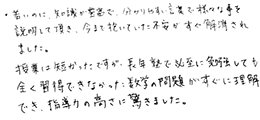 ・若いのに、知識が豊富で、分かりやすい言葉で様々な事を
説明して頂き、今まで抱いていた不安がすぐ解消され
ました。
授業は短かったですが、長年塾で必至に勉強しても
全く習得できなかった数学の問題がすぐに理解
でき、指導力の高さに驚きました。